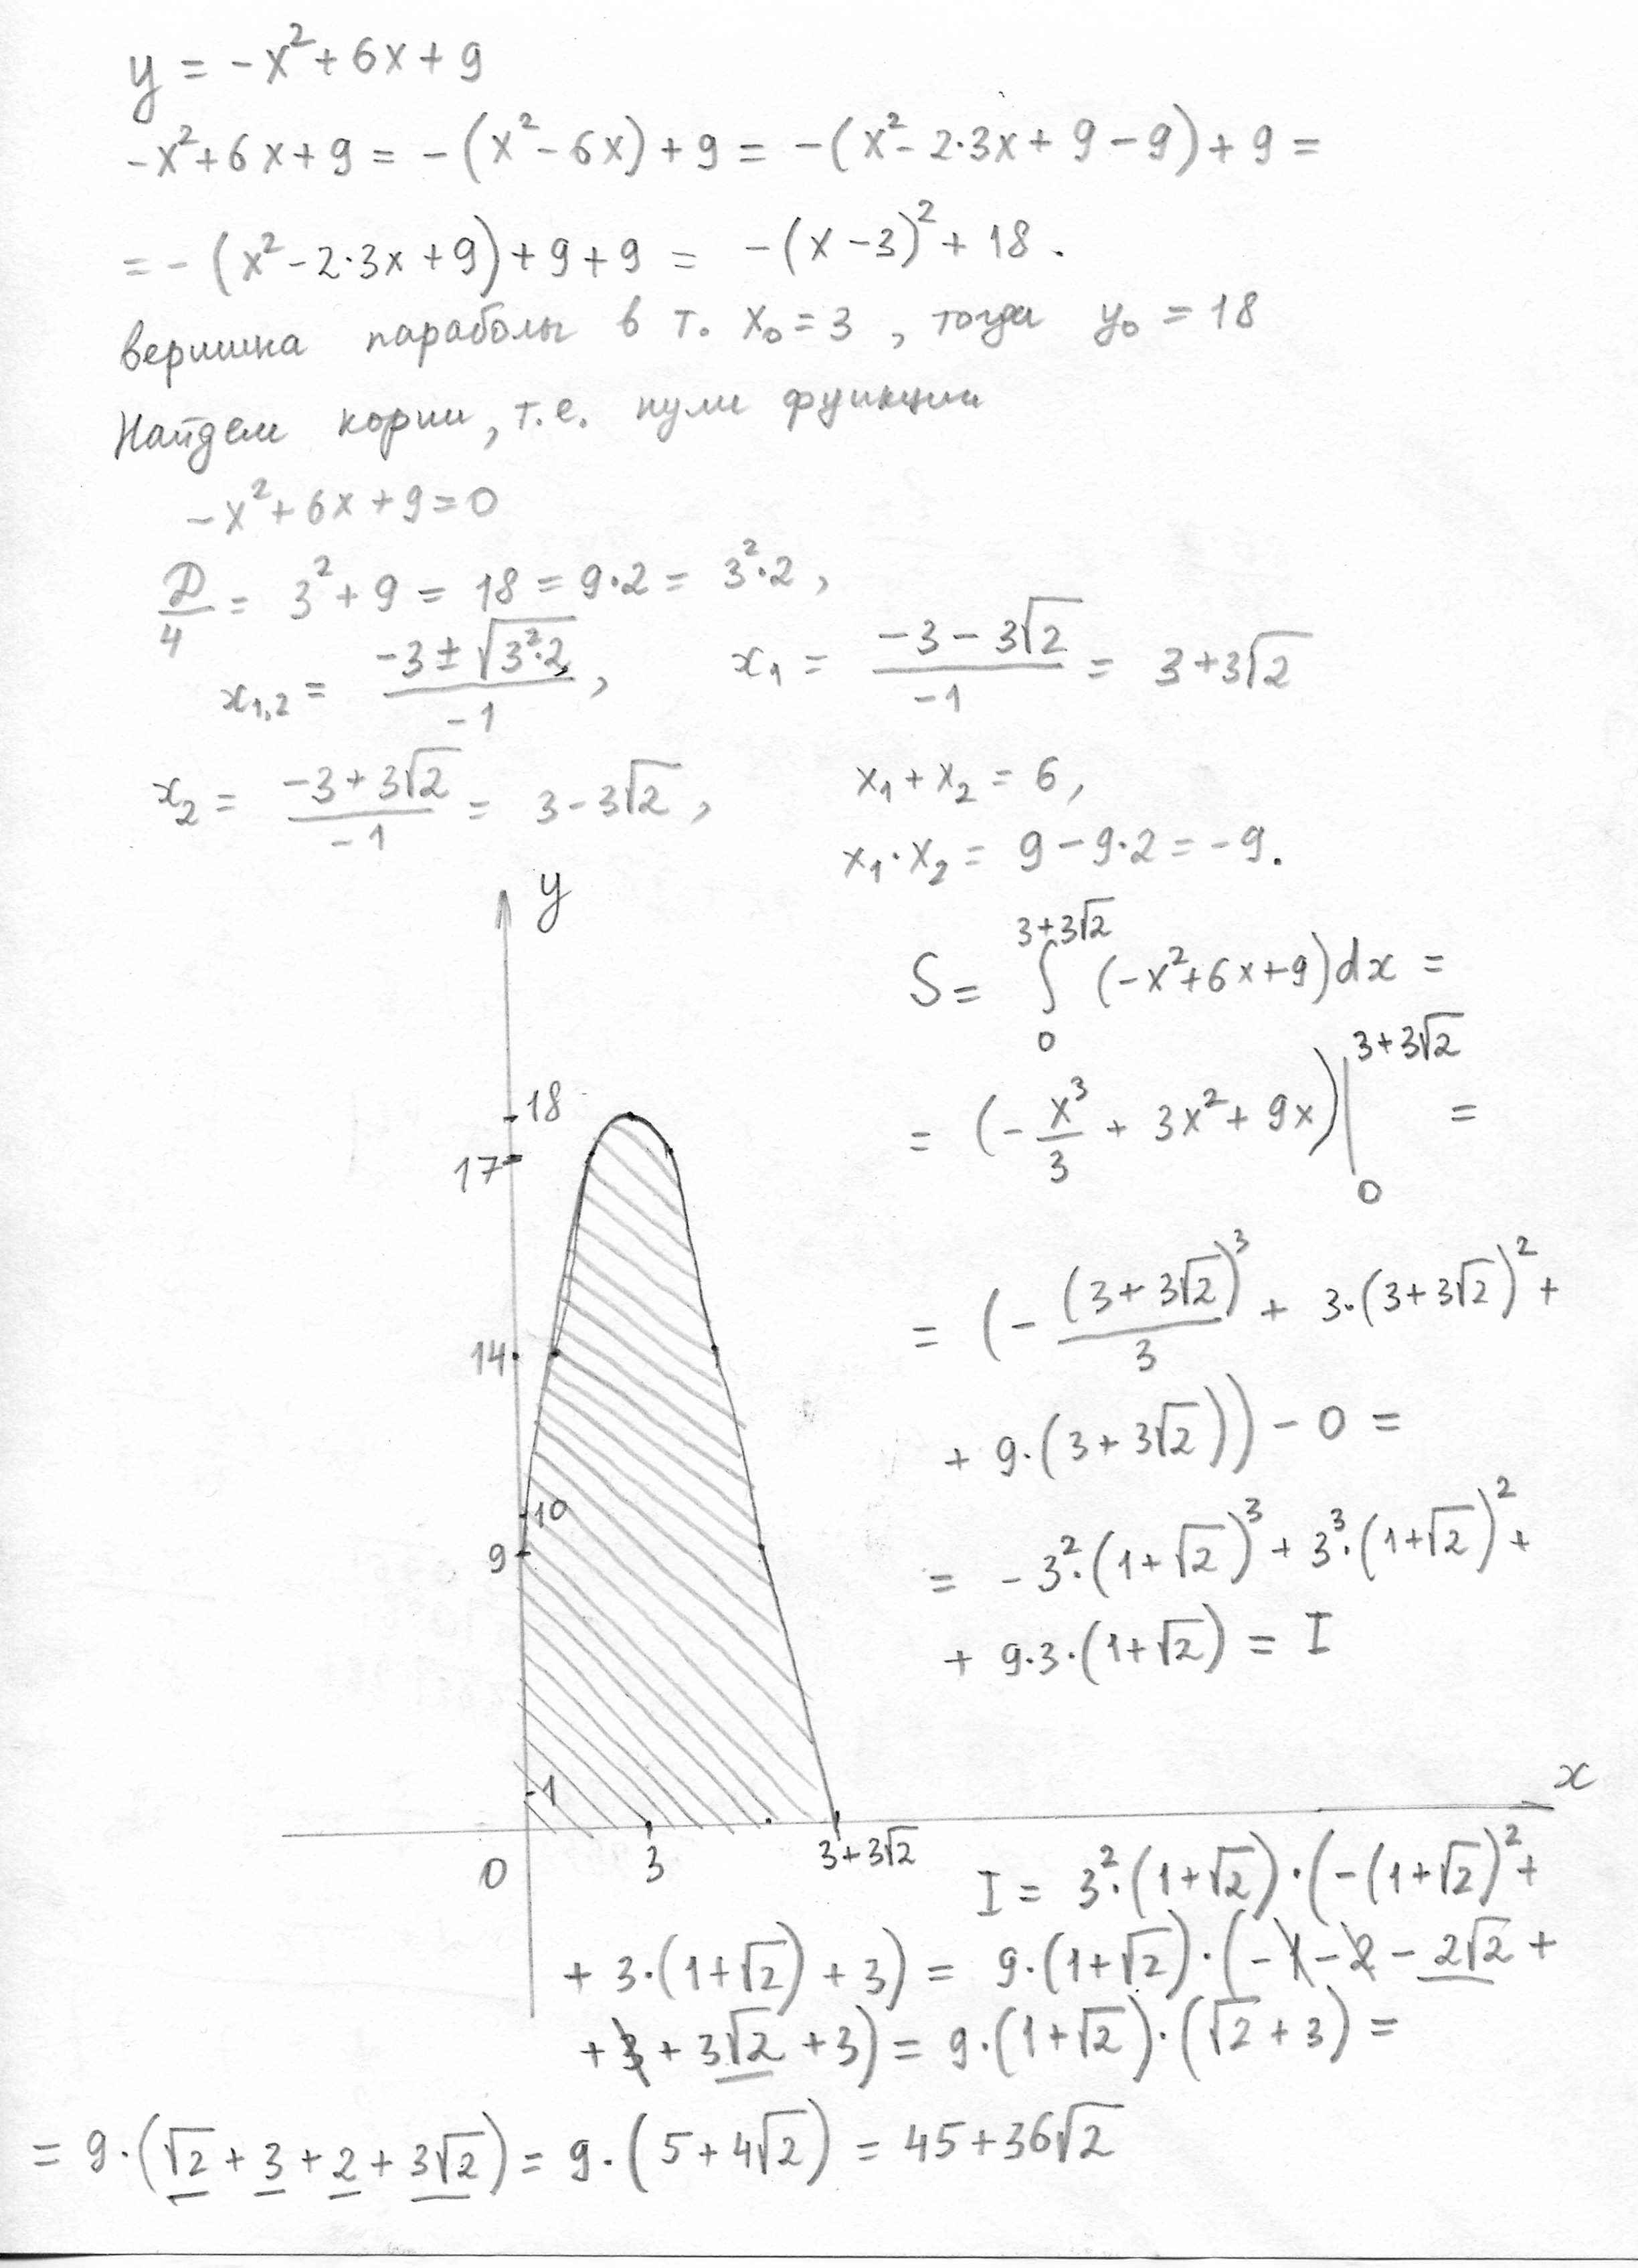 y = -x² + 6x + 9
-x² + 6x + 9 = -(x² - 6x) + 9 = -(x² - 2·3x + 9 - 9) + 9 =
= -(x² - 2·3x + 9) + 9 + 9 = -(x - 3)² + 18.
вершина параболы в т. x₀ = 3, тогда y₀ = 18
Найдем корни, т.е. нули функции
-x² + 6x + 9 = 0
D/4 = 3² + 9 = 18 = 9·2 = 3²·2,
x₁,₂ = (-3 ± √(3²·2))/(-1), x₁ = (-3 - 3√2)/(-1) = 3 + 3√2
x₂ = (-3 + 3√2)/(-1) = 3 - 3√2, x₁ + x₂ = 6,
x₁·x₂ = 9 - 9·2 = -9.
y
S = ∫₀^(3+3√2) (-x² + 6x + 9)dx =
= (-x³/3 + 3x² + 9x)|₀^(3+3√2) =
18
17
= (-(3 + 3√2)³/3 + 3·(3 + 3√2)² +
14
+ 9·(3 + 3√2)) - 0 =
10
9
= -3²·(1 + √2)³ + 3³·(1 + √2)² +
+ 9·3·(1 + √2) = I
1
x
0 3 3+3√2
I = 3²·(1 + √2)·(-(1 + √2)² +
+ 3·(1 + √2) + 3) = 9·(1 + √2)·(-1 - 2 - 2√2 +
+ 3 + 3√2 + 3) = 9·(1 + √2)·(√2 + 3) =
= 9·(√2 + 3 + 2 + 3√2) = 9·(5 + 4√2) = 45 + 36√2